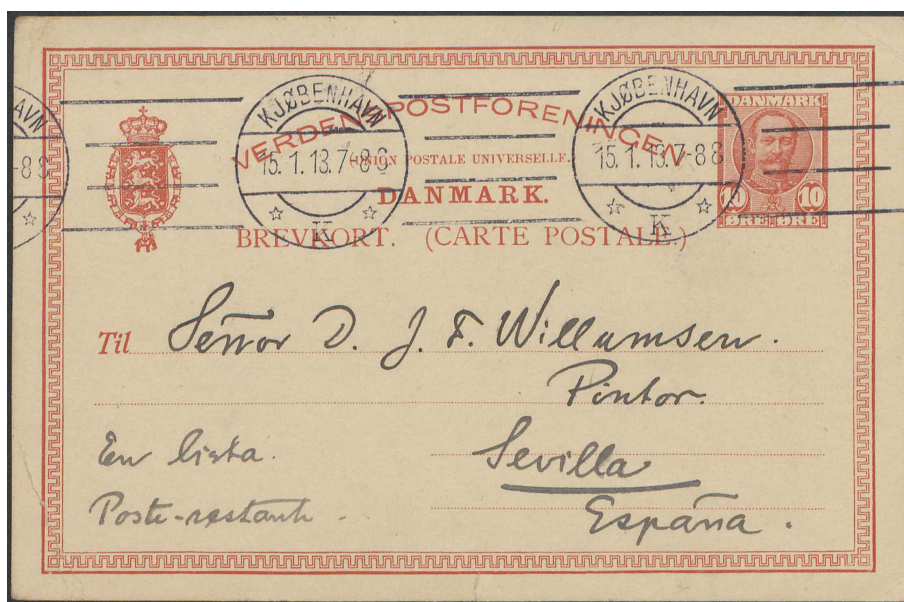 VERDENSPOSTFORENINGEN
(UNION POSTALE UNIVERSELLE.)
DANMARK.
BREVKORT. (CARTE POSTALE.)
KJØBENHAVN
15.1.13.7-8 8
K
KJØBENHAVN
15.1.13.7-8 8
K
AVN
-8 8
DANMARK
10 10
ØRE ØRE
Til Señor D. J. F. Willumsen.
Pintor.
En lista. Sevilla
Poste-restante - España.